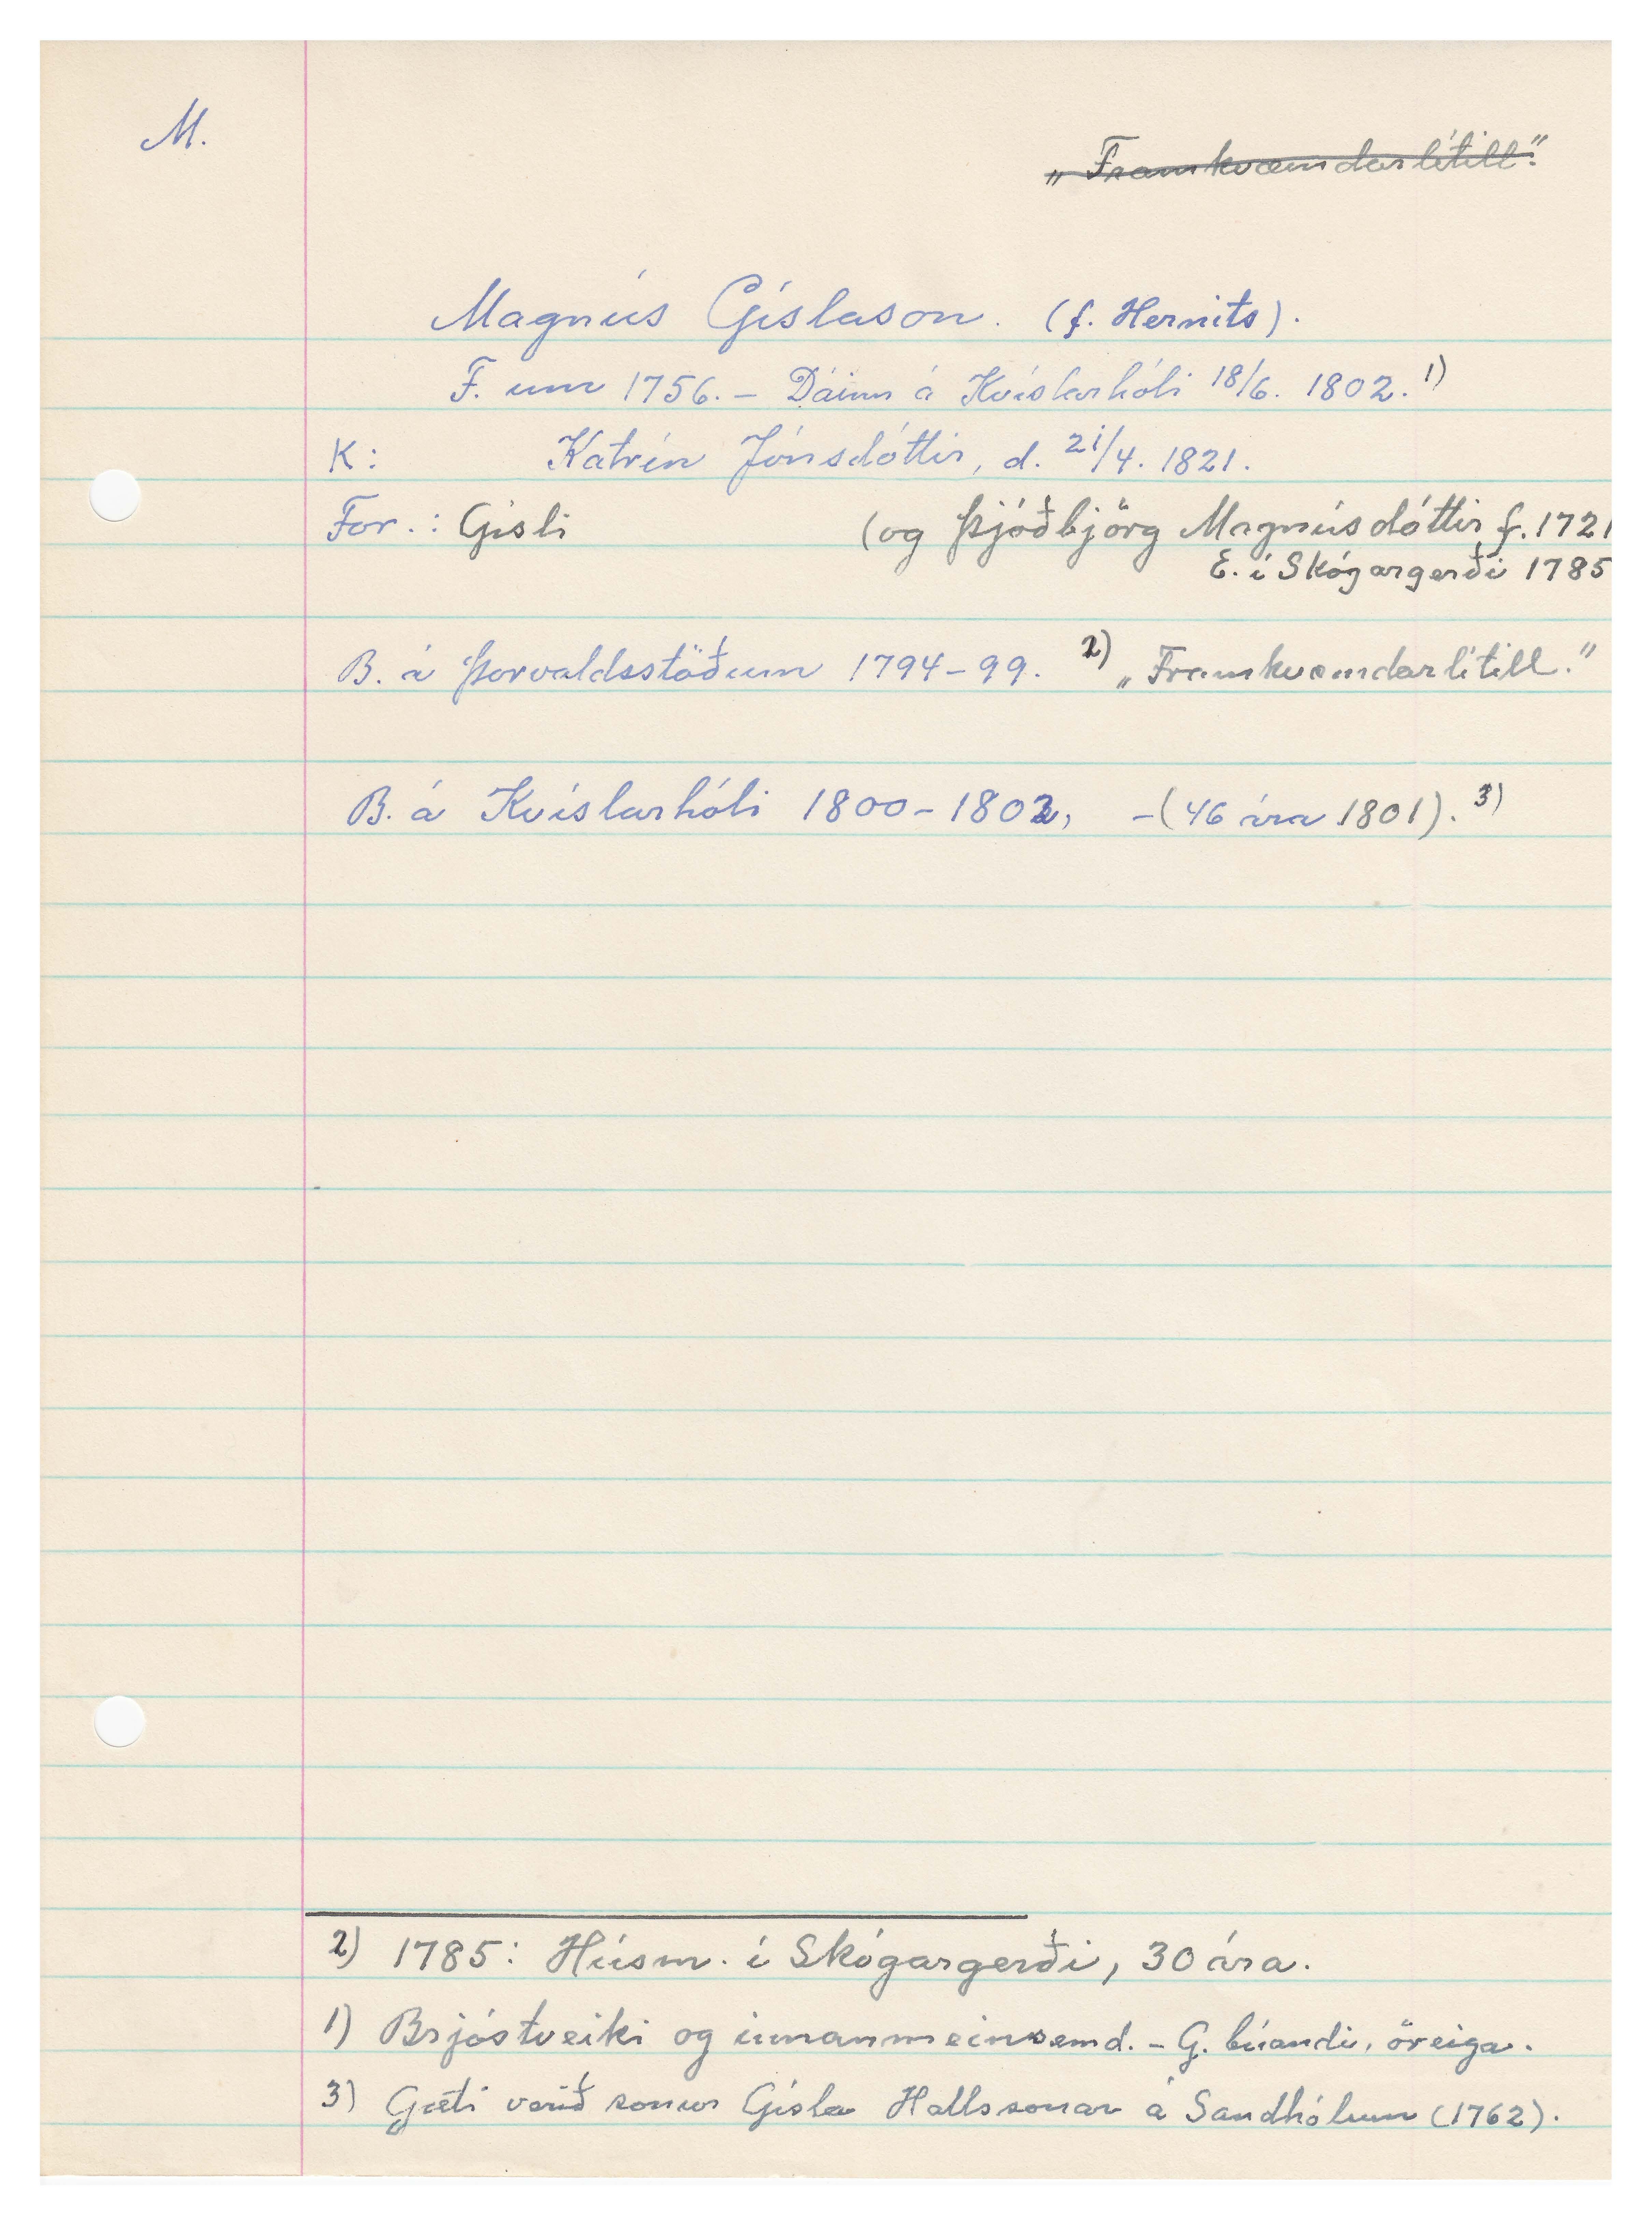 M.
„Framkvæmdarlítill."
Magnús Gíslason. (f. Hernits).
F. um 1756. – Dáinn á Kvíslarhóli 18/6. 1802. 1)
K: Katrín Jónsdóttir, d. 21/4. 1821.
For.: Gísli (og Þjóðbjörg Magnúsdóttir f. 1721
E. í Skógargerði 1785
B. á Þorvaldsstöðum 1794–99. 2) „Framkvæmdarlítill."
B. á Kvíslarhóli 1800–1802, –(46 ára 1801). 3)
2) 1785: Húsm. í Skógargerði, 30 ára.
1) Brjóstveiki og innanmeinsemd. – G. búandi, öreiga.
3) Gæti verið sonur Gísla Hallssonar á Sandhólum (1762).